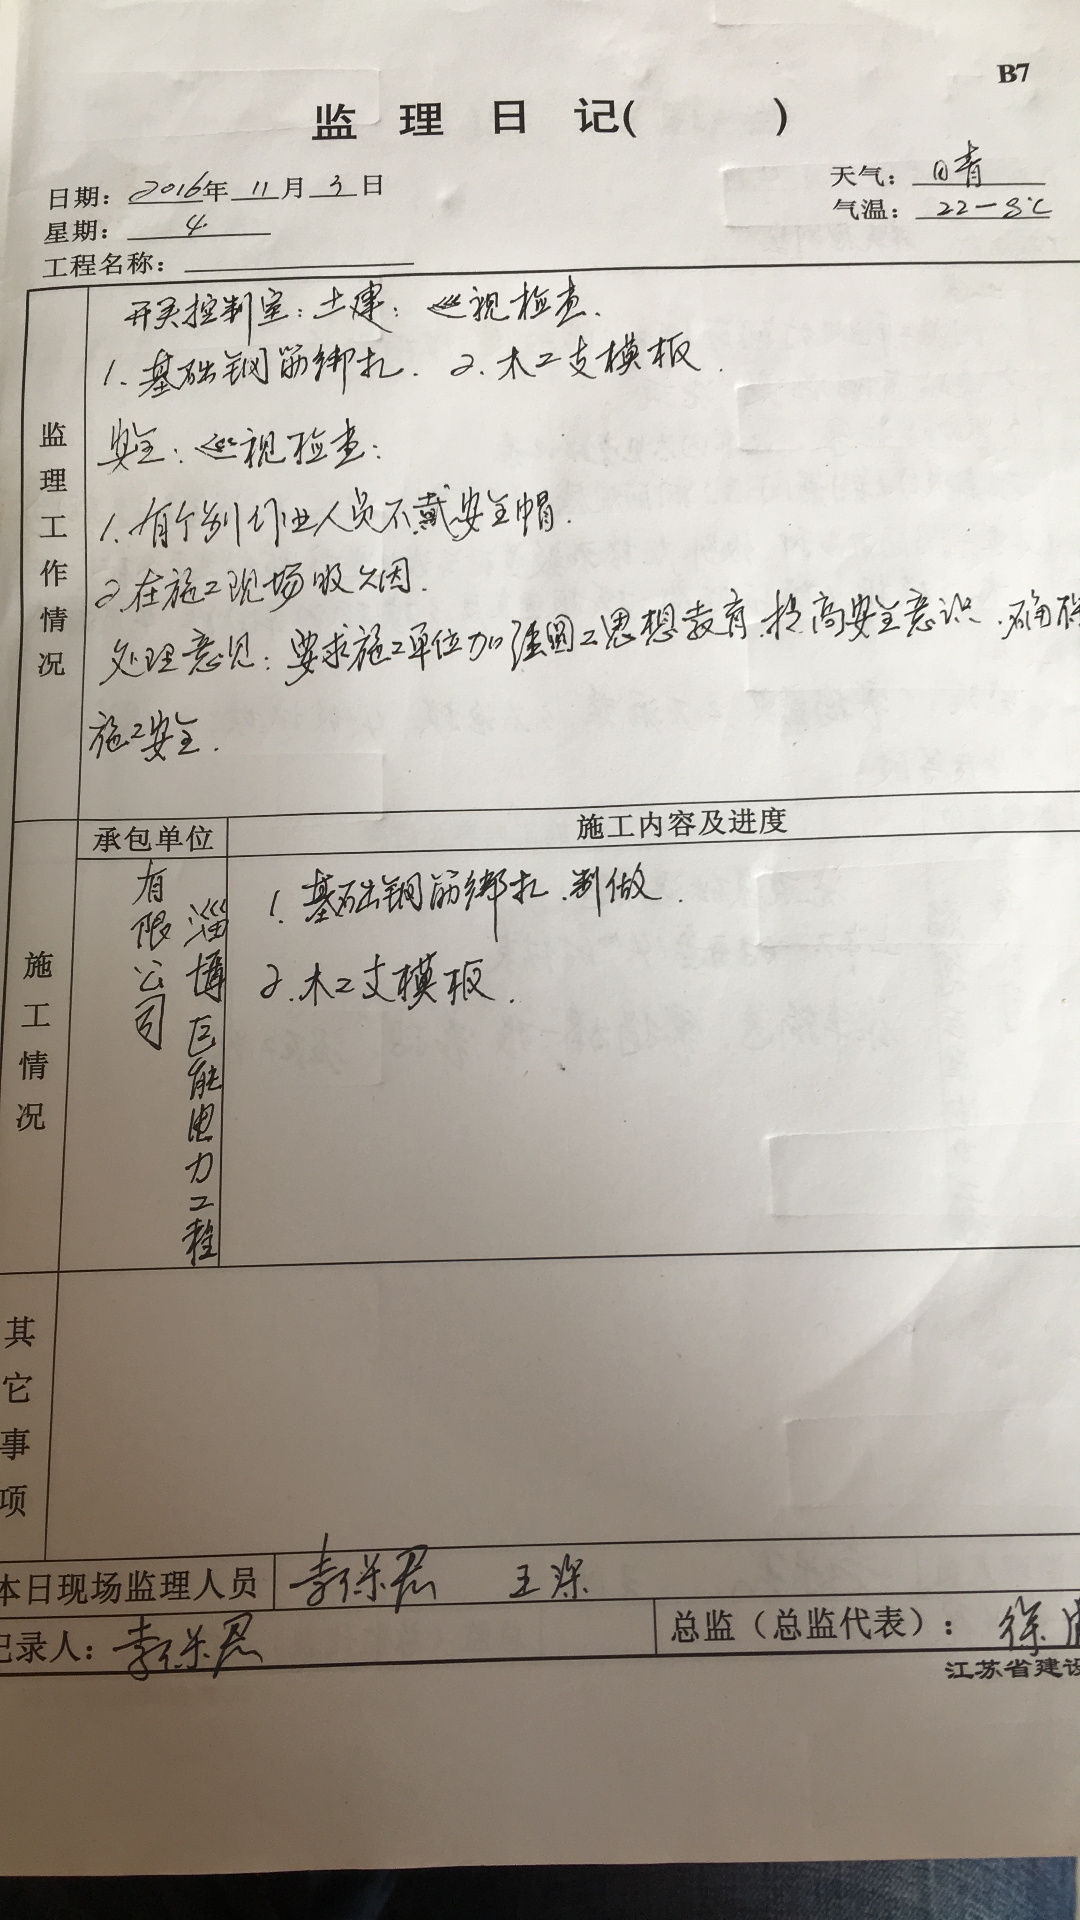 B7
监 理 日 记( )
日期：2016年 11 月 3 日
天气：晴
星期：4.
气温：22-8℃
工程名称：
监理工作情况
开关控制室：土建：巡视检查.
1. 基础钢筋绑扎. 2. 木工支模板.
安全：巡视检查：
1. 有个别作业人员不戴安全帽.
2. 在施工现场吸烟.
处理意见：要求施工单位加强员工思想教育.提高安全意识.确保
施工安全.
承包单位
施工内容及进度
施工情况
淄博巨能电力工程
有限公司
1. 基础钢筋绑扎.制做.
2. 木工支模板.
其它事项
本日现场监理人员
王
记录人：
总监（总监代表）：徐
江苏省建设